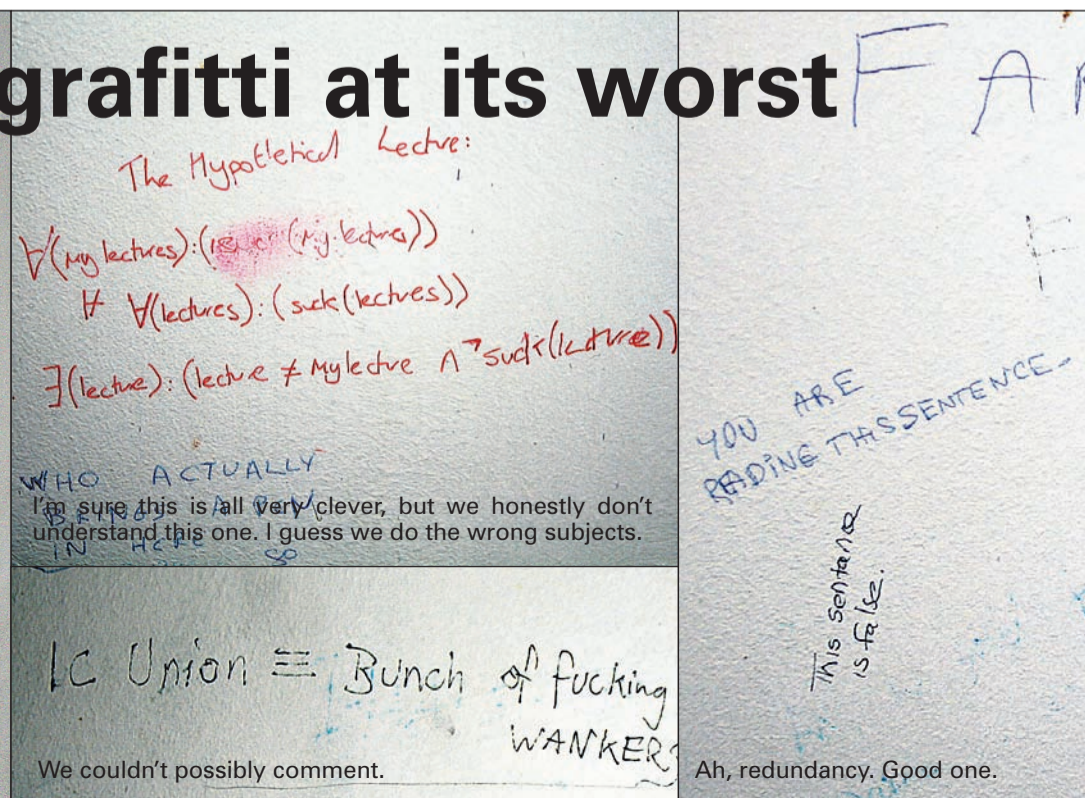 grafitti at its worst
The Hypothetical Lecture:
∀(My lectures):( (My lectures))
⊬ ∀(lectures):(suck(lectures))
∃(lecture):(lecture ≠ My lecture ∧ ¬suck(lecture))
WHO ACTUALLY
BRINGS A PEN
IN HERE
SO
I'm sure this is all very clever, but we honestly don't
understand this one. I guess we do the wrong subjects.
IC Union ≡ Bunch of fucking
WANKERS
We couldn't possibly comment.
F A
F
YOU ARE
READING THIS SENTENCE
This sentance
is false.
Ah, redundancy. Good one.